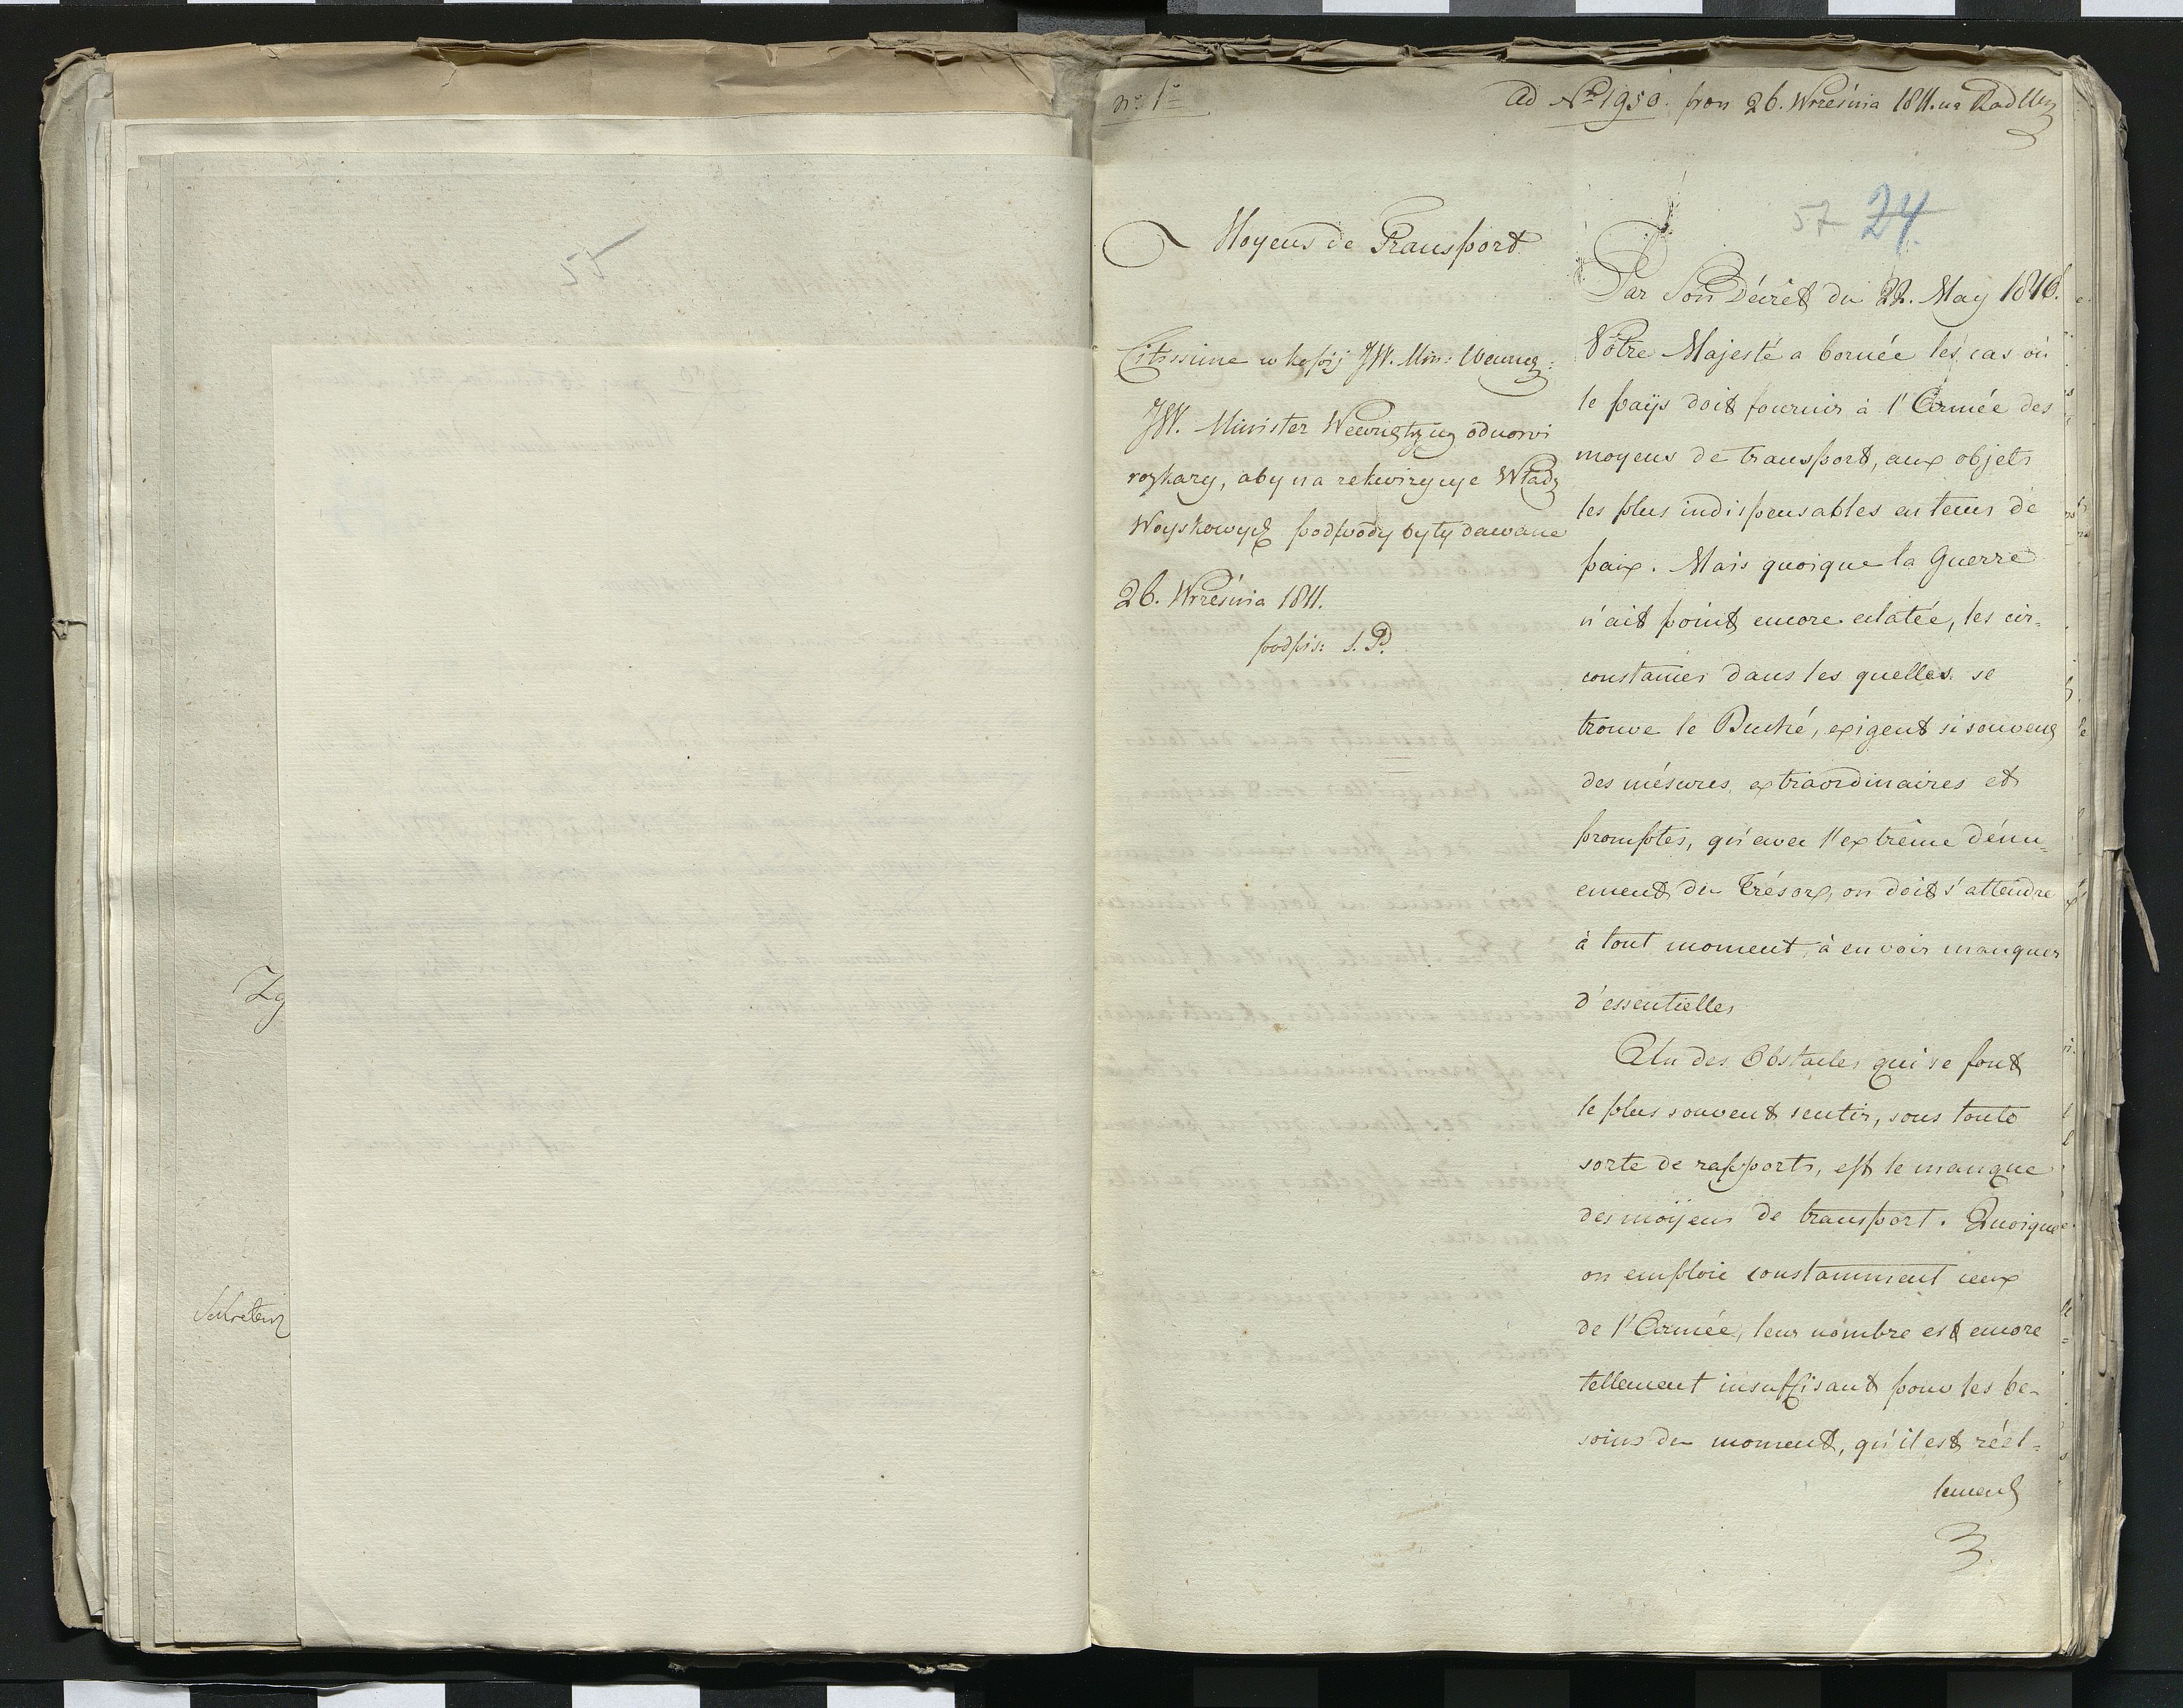 55
Zg
Sekretarz
No. 1o
Ad No 1950. pron 26. Września 1811. na Rad Mn
57 24
Moyens de Transport
Citissime w kopij JW. Min: Wewnęz:
JW. Minister Wewnętrzny odnowi
rozkazy, aby na rekwizycye Władz
Woyskowych podwody były dawane
26. Września 1811.
podpis: S. P.
Par Son Décret du 22. May 1810.
Vôtre Majesté a bornée les cas où
le paÿs doit fournir à l'Armée des
moyens de transport, aux objets
les plus indispensables en tems de
paix. Mais quoique la Guerre
n'ait point encore eclatée, les cir=
constances dans les quelles se
trouve le Duché, exigent si souvent
des mésures extraordinaires et
promptes, qu'avec l'extrême dénu=
ement du Trésor, on doit s'attendre
à tout moment à en voir manquer
d'essentielles
Un des Obstacles qui se font
le plus souvent sentir, sous toute
sorte de rapports, est le manque
des moÿens de transport. Quoique
on emploie constamment ceux
de l'Armée, leur nombre est encore
tellement insuffisant pour les be-
soins du moment, qu'il est réel=
lement